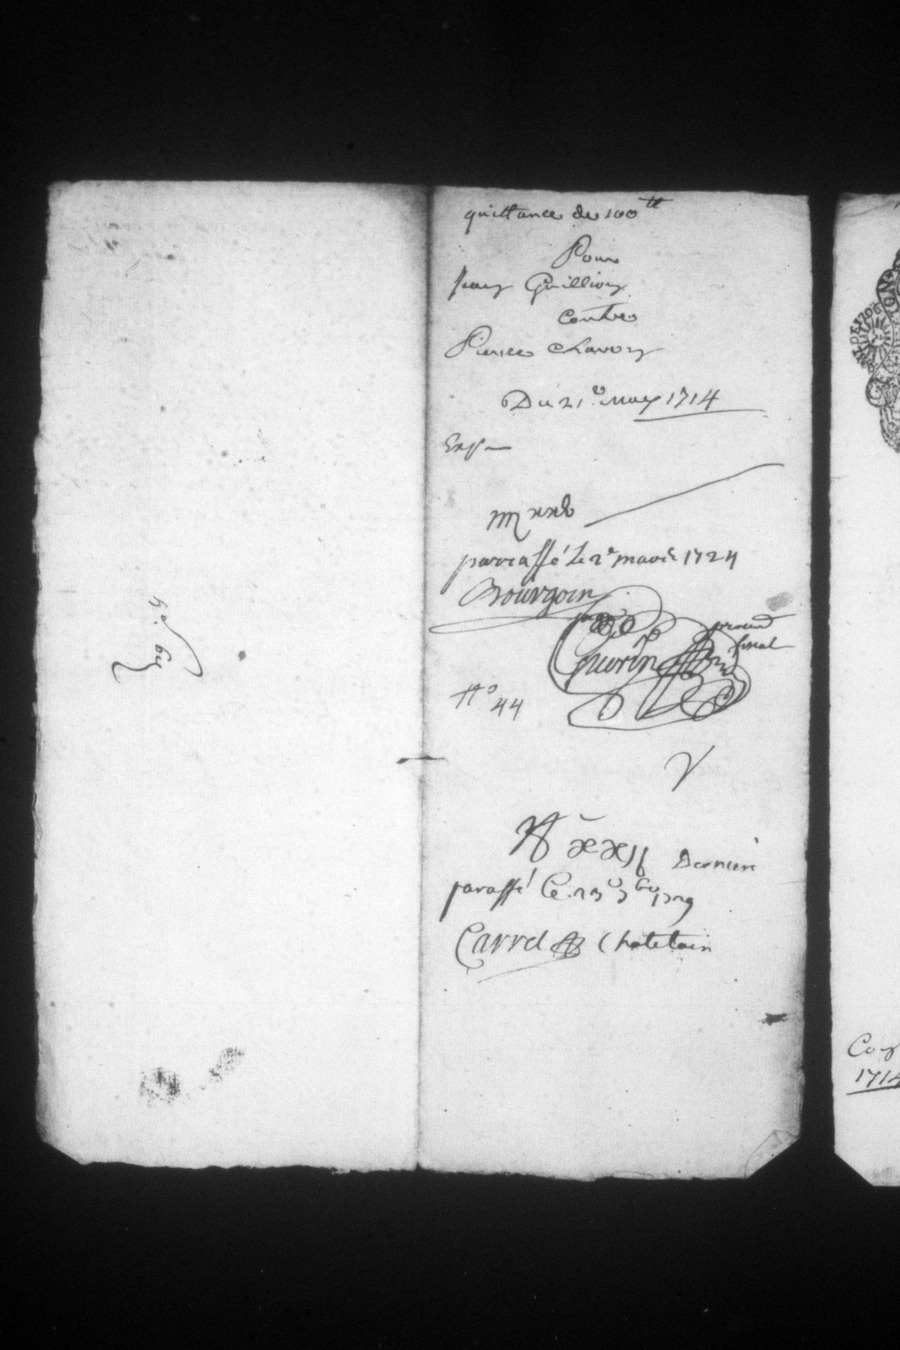 quittance de 100 tt
Pour
Jean Guillion
Contre
Pierre Chavoy
Du 21e may 1714
Exp
parraffé Le 2e mars 1724
Bourgoin
Guerin procur
fiscal
No 44
Derniere
paraffé Le 23e 9bre 1729
Carrel Chatelain
Coy
1714